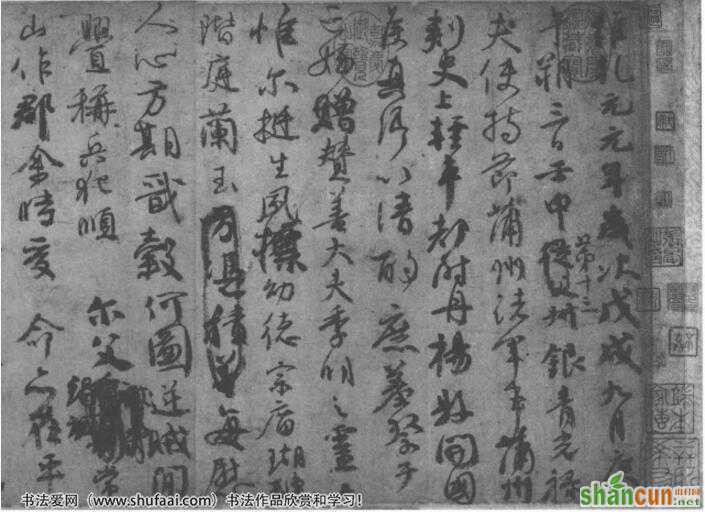 維乾元元年歲次戊戌九月庚
午朔三日壬申第十三叔銀青光祿
夫使持節蒲州諸軍事蒲州
刺史上輕車都尉丹楊縣開國
侯真卿以清酌庶羞祭于
亡姪贈贊善大夫季明之靈曰
惟爾挺生夙標幼德宗廟瑚璉
階庭蘭玉方憑積善每慰
人心方期戩穀何圖逆賊閒
釁稱兵犯順 爾父竭誠常
山作郡余時受命亦在平
书法爱网(www.shufaai.com)书法作品欣赏和学习!
shancun 山村网
.net